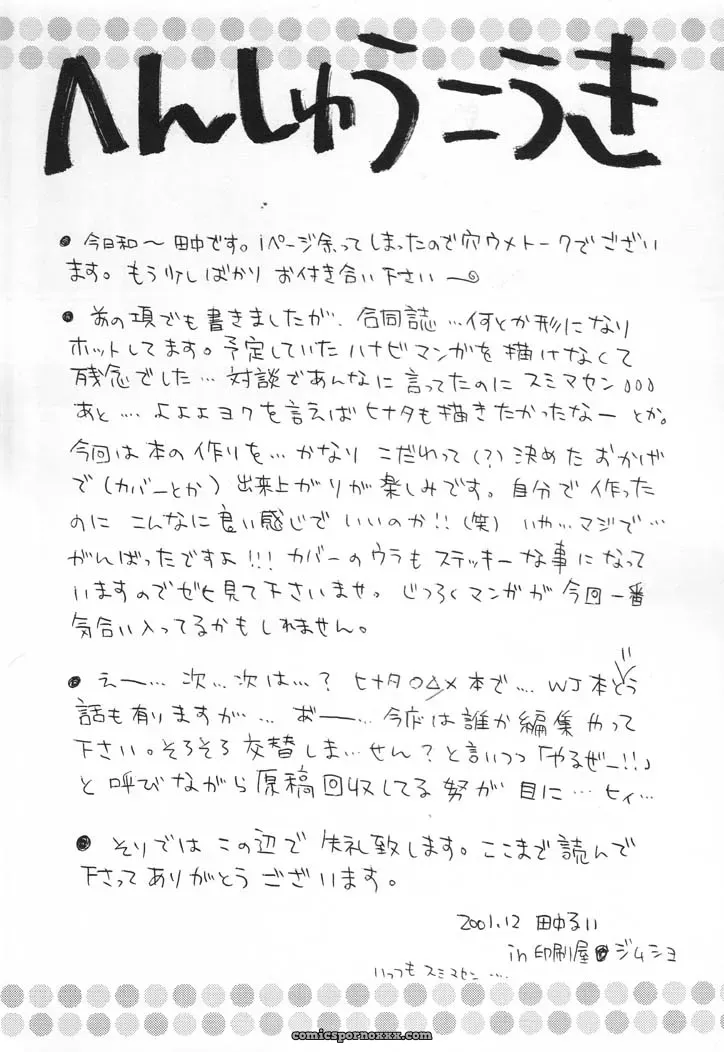 へんしゅうこうき
● 今日和〜 田中です。1ページ余ってしまったので穴ウメトークでござい
ます。もう少しばかり お付き合い下さい
● あの項でも書きましたが、合同誌…何とか形になり
ホットしてます。予定していたハナビマンガを描けなくて
残念でした… 対談であんなに言ってたのに スミマセン
あと…. よよよヨクを言えばヒナタも描きたかったなー とか。
今回は本の作りを… かなり こだわって(?)決めた おかげ
で(カバーとか) 出来上がりが楽しみです。自分で作った
のに こんなに良い感じで いいのか!!(笑) いや…マジで…
がんばったですよ!!! カバーのウラも ステッキーな事になって
いますのでゼヒ見て下さいませ。じつろくマンガが 今回一番
気合い入ってるかもしれません。
● えー… 次… 次は…? ヒナタ○△×本で… WJ本とう
話も有りますが … おー… 今度は誰か編集やって
下さい。そろそろ 交替しま…せん? と言いつつ「やるぜー!!」
と呼びながら原稿回収してる 努が 目に… ヒィ…
● そりでは この辺で 失礼致します。ここまで読んで
下さってありがとう ございます。
2001.12 田中るい
in 印刷屋 ジムショ
いっつも スミマセン….
comicspornoxxx.com